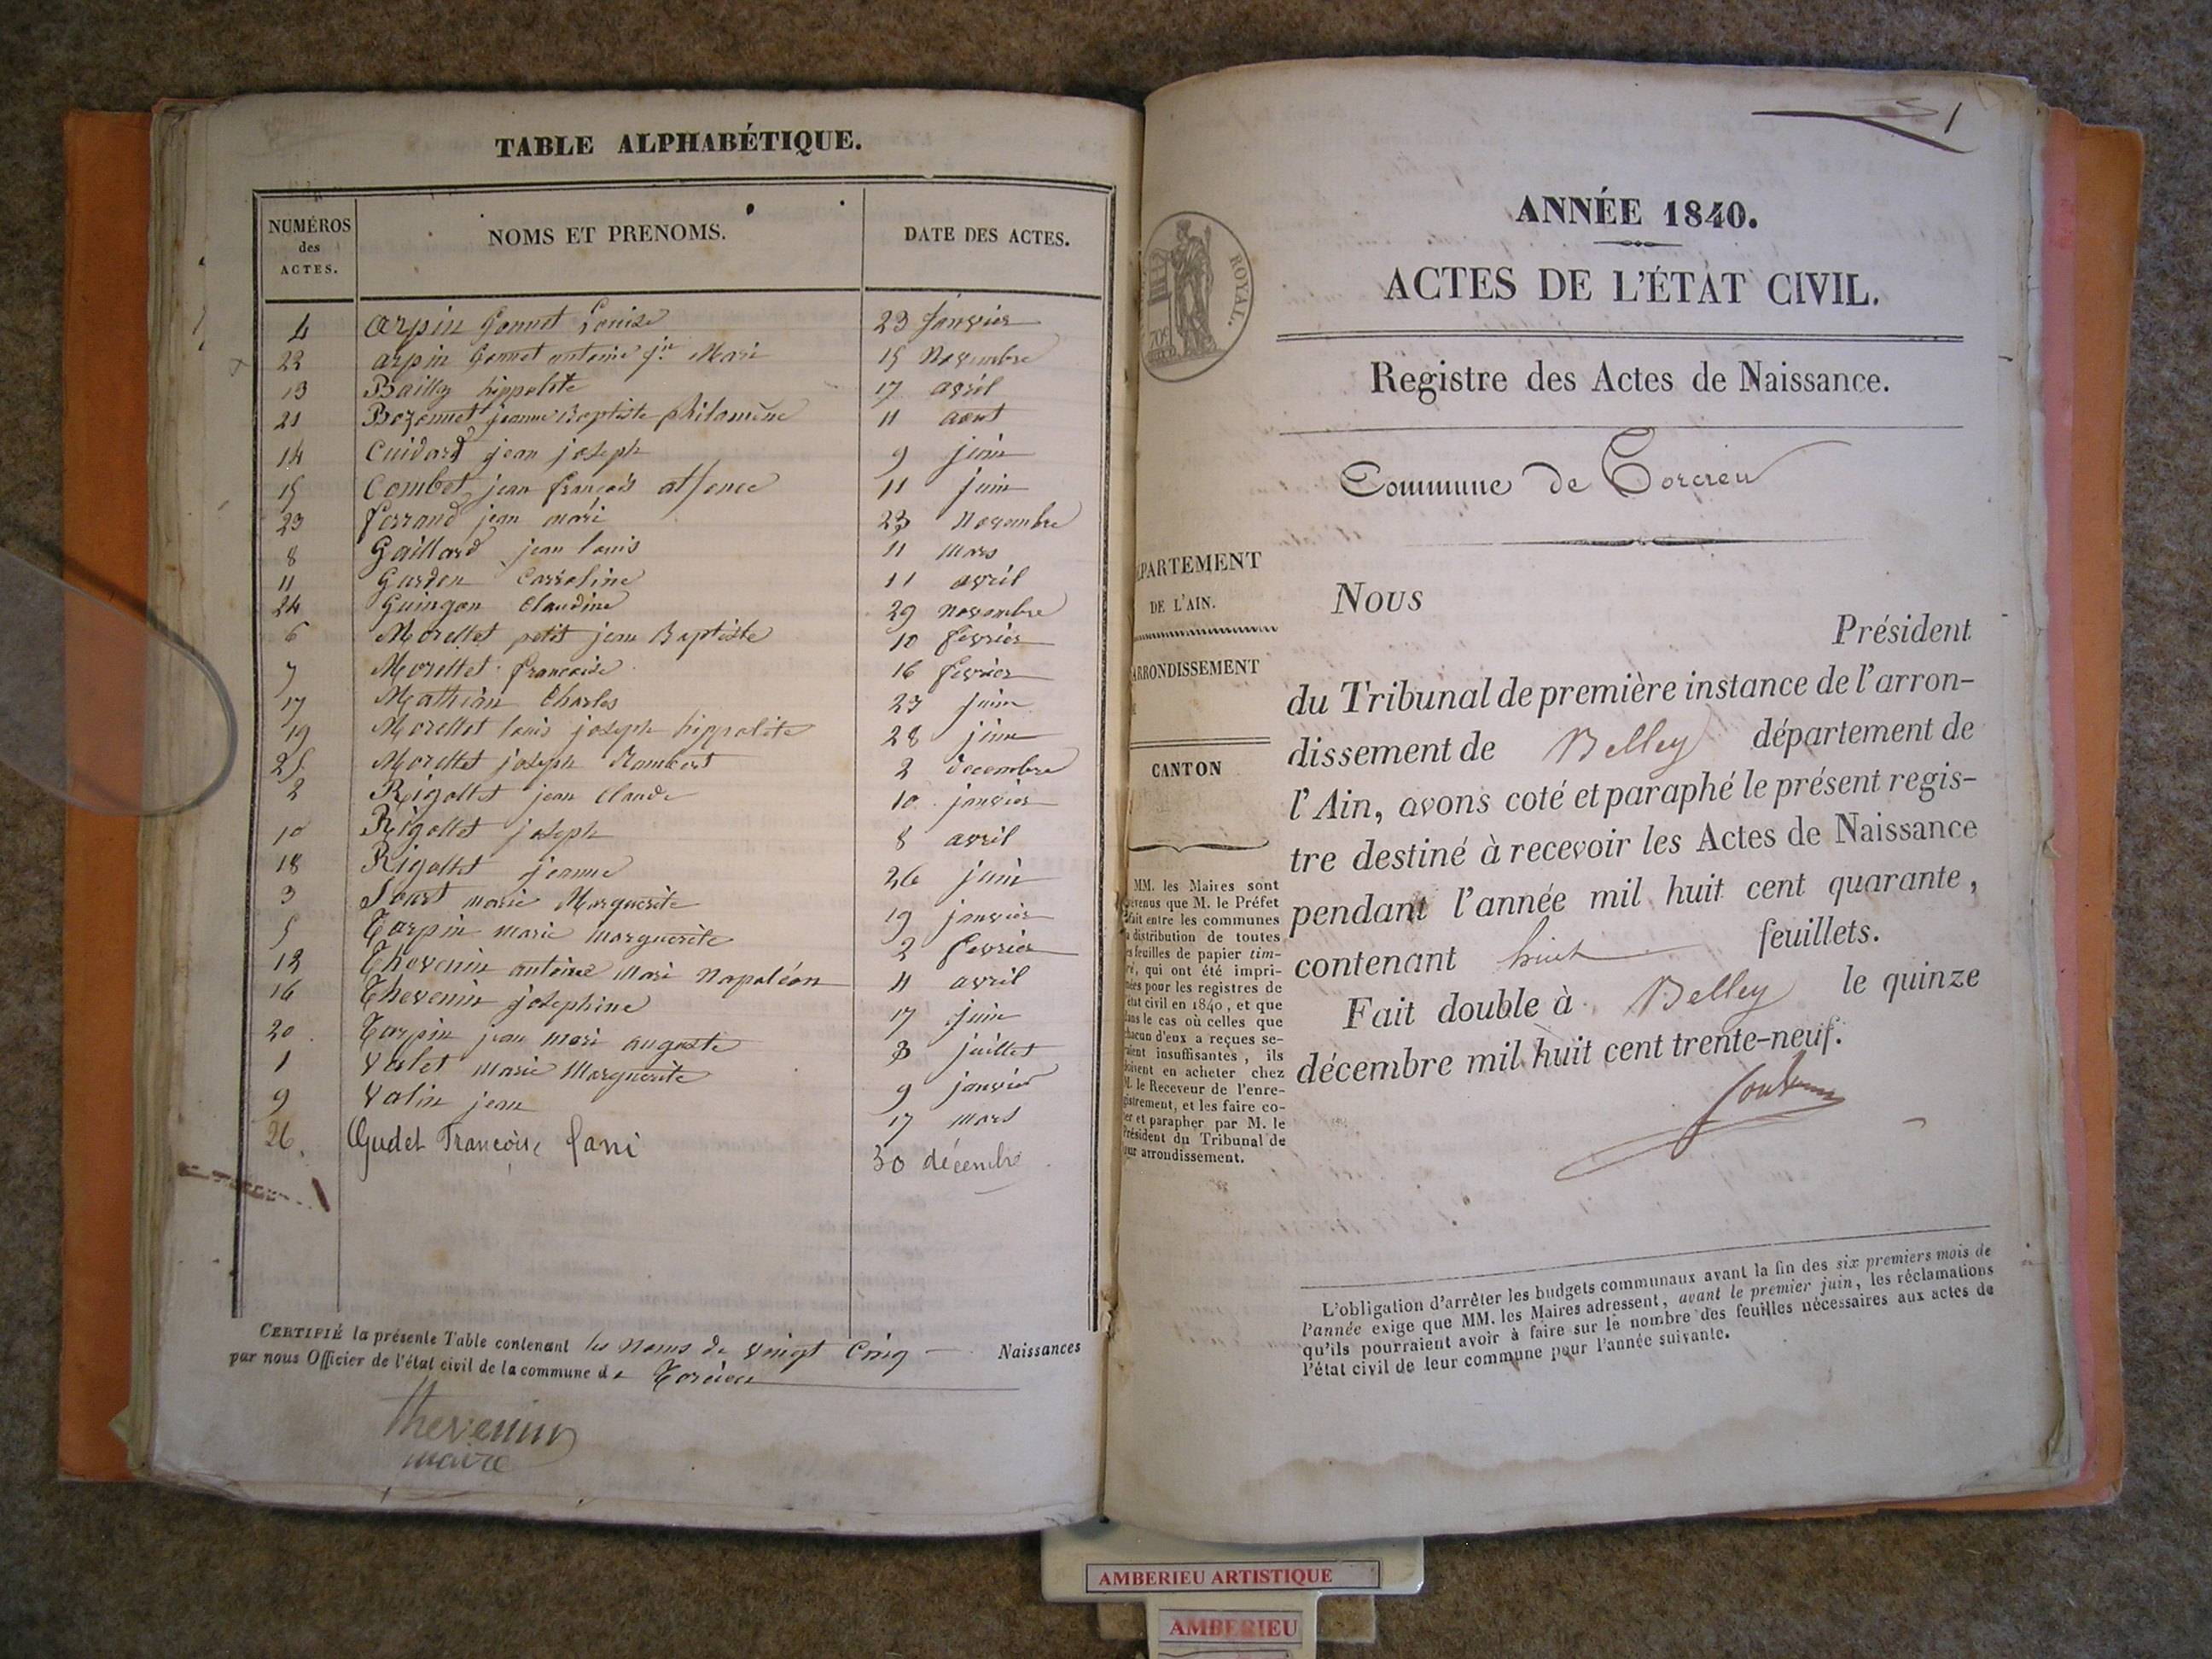 TABLE ALPHABÉTIQUE.
NUMÉROS des ACTES. NOMS ET PRENOMS. DATE DES ACTES.
4 arpin Gonnet Louise 23 janvier
22 arpin Gonnet antoine jn Mari 15 Novembre
13 Bailly hippolite 17 avril
21 Bozonnet jeanne Baptiste philomène 11 aout
14 Cuidard jean joseph 9 juin
15 Combet jean françois 11 juin
23 ferrand jean mari 23 Novembre
8 Gaillard jean louis 11 mars
11 Gardon Carroline 11 avril
24 Guingon Claudine 29 novembre
6 Morellet petit jean Baptiste 10 fevrier
7 Morellet francoise 16 fevrier
17 Mathian Charles 27 juin
19 Morellet louis joseph hippolite 28 juin
25 Morellet joseph Rambert 2 decembre
2 Rigollet jean Claude 10 janvier
10 Rigollet joseph 8 avril
18 Rigollet jeanne 26 juin
3 marie Marguerite 19 janvier
5 Tarpin marie marguerite 2 fevrier
12 Thevenin antoine Mari Napoléon 11 avril
16 Thevenin josephine 17 juin
20 Tarpin jean mari auguste 3 juillet
1 Valet marie Marguerite 9 janvier
9 Valin jean 17 mars
26. Gudet Françoise fani 30 décembre
CERTIFIÉ la présente Table contenant les Noms de vingt Cinq Naissances
par nous Officier de l'état civil de la commune de Torcieu
thevenin
maire
1
ANNÉE 1840.
ROYAL.
70c
ACTES DE L'ÉTAT CIVIL.
Registre des Actes de Naissance.
Commune de Torcieu
PARTEMENT
DE L'AIN.
ARRONDISSEMENT
CANTON
MM. les Maires sont
évenus que M. le Préfet
fait entre les communes
a distribution de toutes
es feuilles de papier tim-
ré, qui ont été impri-
mées pour les registres de
état civil en 1840, et que
dans le cas où celles que
chacun d'eux a reçues se-
raient insuffisantes, ils
doivent en acheter chez
M. le Receveur de l'enre-
gistrement, et les faire co-
ter et parapher par M. le
Président du Tribunal de
eur arrondissement.
Nous
Président
du Tribunal de première instance de l'arron-
dissement de Belley département de
l'Ain, avons coté et paraphé le présent regis-
tre destiné à recevoir les Actes de Naissance
pendant l'année mil huit cent quarante,
contenant huit feuillets.
Fait double à Belley le quinze
décembre mil huit cent trente-neuf.
L'obligation d'arrêter les budgets communaux avant la fin des six premiers mois de
l'année exige que MM. les Maires adressent, avant le premier juin, les réclamations
qu'ils pourraient avoir à faire sur le nombre des feuilles nécessaires aux actes de
l'état civil de leur commune pour l'année suivante.
AMBERIEU ARTISTIQUE
AMBERIEU